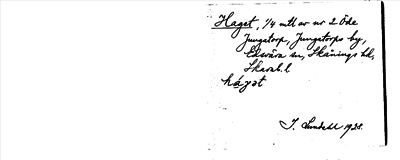 Haget, 1/4 mtl av nr 2 Öde
Jungstorp, Jungstorps by,
sn, Skånings hd,
Skarab. l
hágət
I. Lundahl 1928.